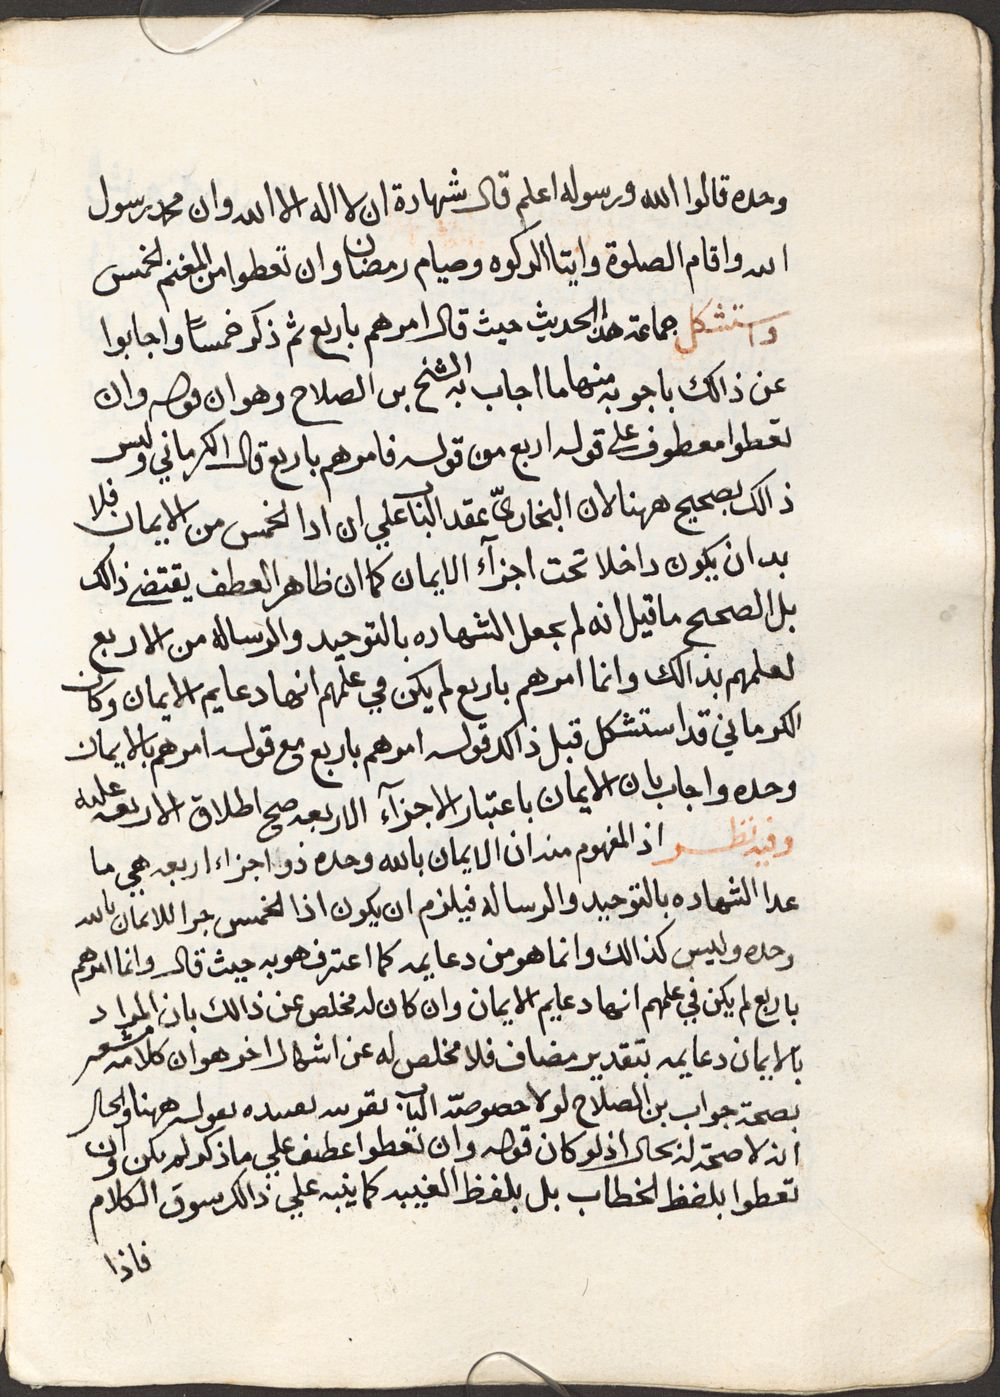 وحده قالوا الله ورسوله اعلم قال شهادة ان لا اله الا الله وان محمد رسول
الله واقام الصلوة وايتا الزكوه وصيام رمضان وان تعطوا من المغنم الخمس
واستشكل جماعة هذا الحديث حيث قال امرهم باربع ثم ذكر خمسًا واجابوا
عن ذالك باجوبه منها ما اجاب به الشيخ بن الصلاح وهو ان قوله وان
تعطوا معطوف على قوله اربع من قوله فامرهم باربع قال الكرماني وليس
ذالك بصحيح ههنا لان البخاريّ عقد الباب علي ان ادا الخمس من الايمان فلا
بد ان يكون داخلا تحت اجزآء الايمان كما ان ظاهر العطف يقتضي ذالك
بل الصحيح ما قيل انه لم يجعل الشهاده بالتوحيد والرسالة من الاربع
لعلمهم بذالك وانما امرهم باربع لم يكن في علمهم انها دعايم الايمان وكان
الكرماني قد استشكل قبل ذالك قوله امرهم باربع مع قوله امرهم بالايمان
وحده واجاب بان الايمان باعتبار الاجزآء الاربعه صح اطلاق الاربعه عليه
وفيه نظر اذ المفهوم منه ان الايمان بالله وحده ذو اجزاء اربعه هي ما
عدا الشهاده بالتوحيد والرساله فيلزم ان يكون اذا الخمس جزا للايمان بالله
وحده وليس كذالك وانما هو من دعايمه كما اعترف هو به حيث قال وانما امرهم
باربع لم يكن في علمهم انها دعايم الايمان وان كان له مخلص عن ذالك بان المراد
بالايمان دعايمه بتقدير مضاف فلا مخلص له عن اشكال اخر هو ان كلامه مشعر
بصحة جواب بن الصلاح لولا خصوصية الباب بقرينه تقييده بقوله ههنا والحال
انه لا صحة له بحال اذ لو كان قوله وان تعطوا عطف علي ما ذكر لم يكن وان
تعطوا بلفظ الخطاب بل بلفظ الغيبه كما ينبه علي ذالك سوق الكلام
فاذا